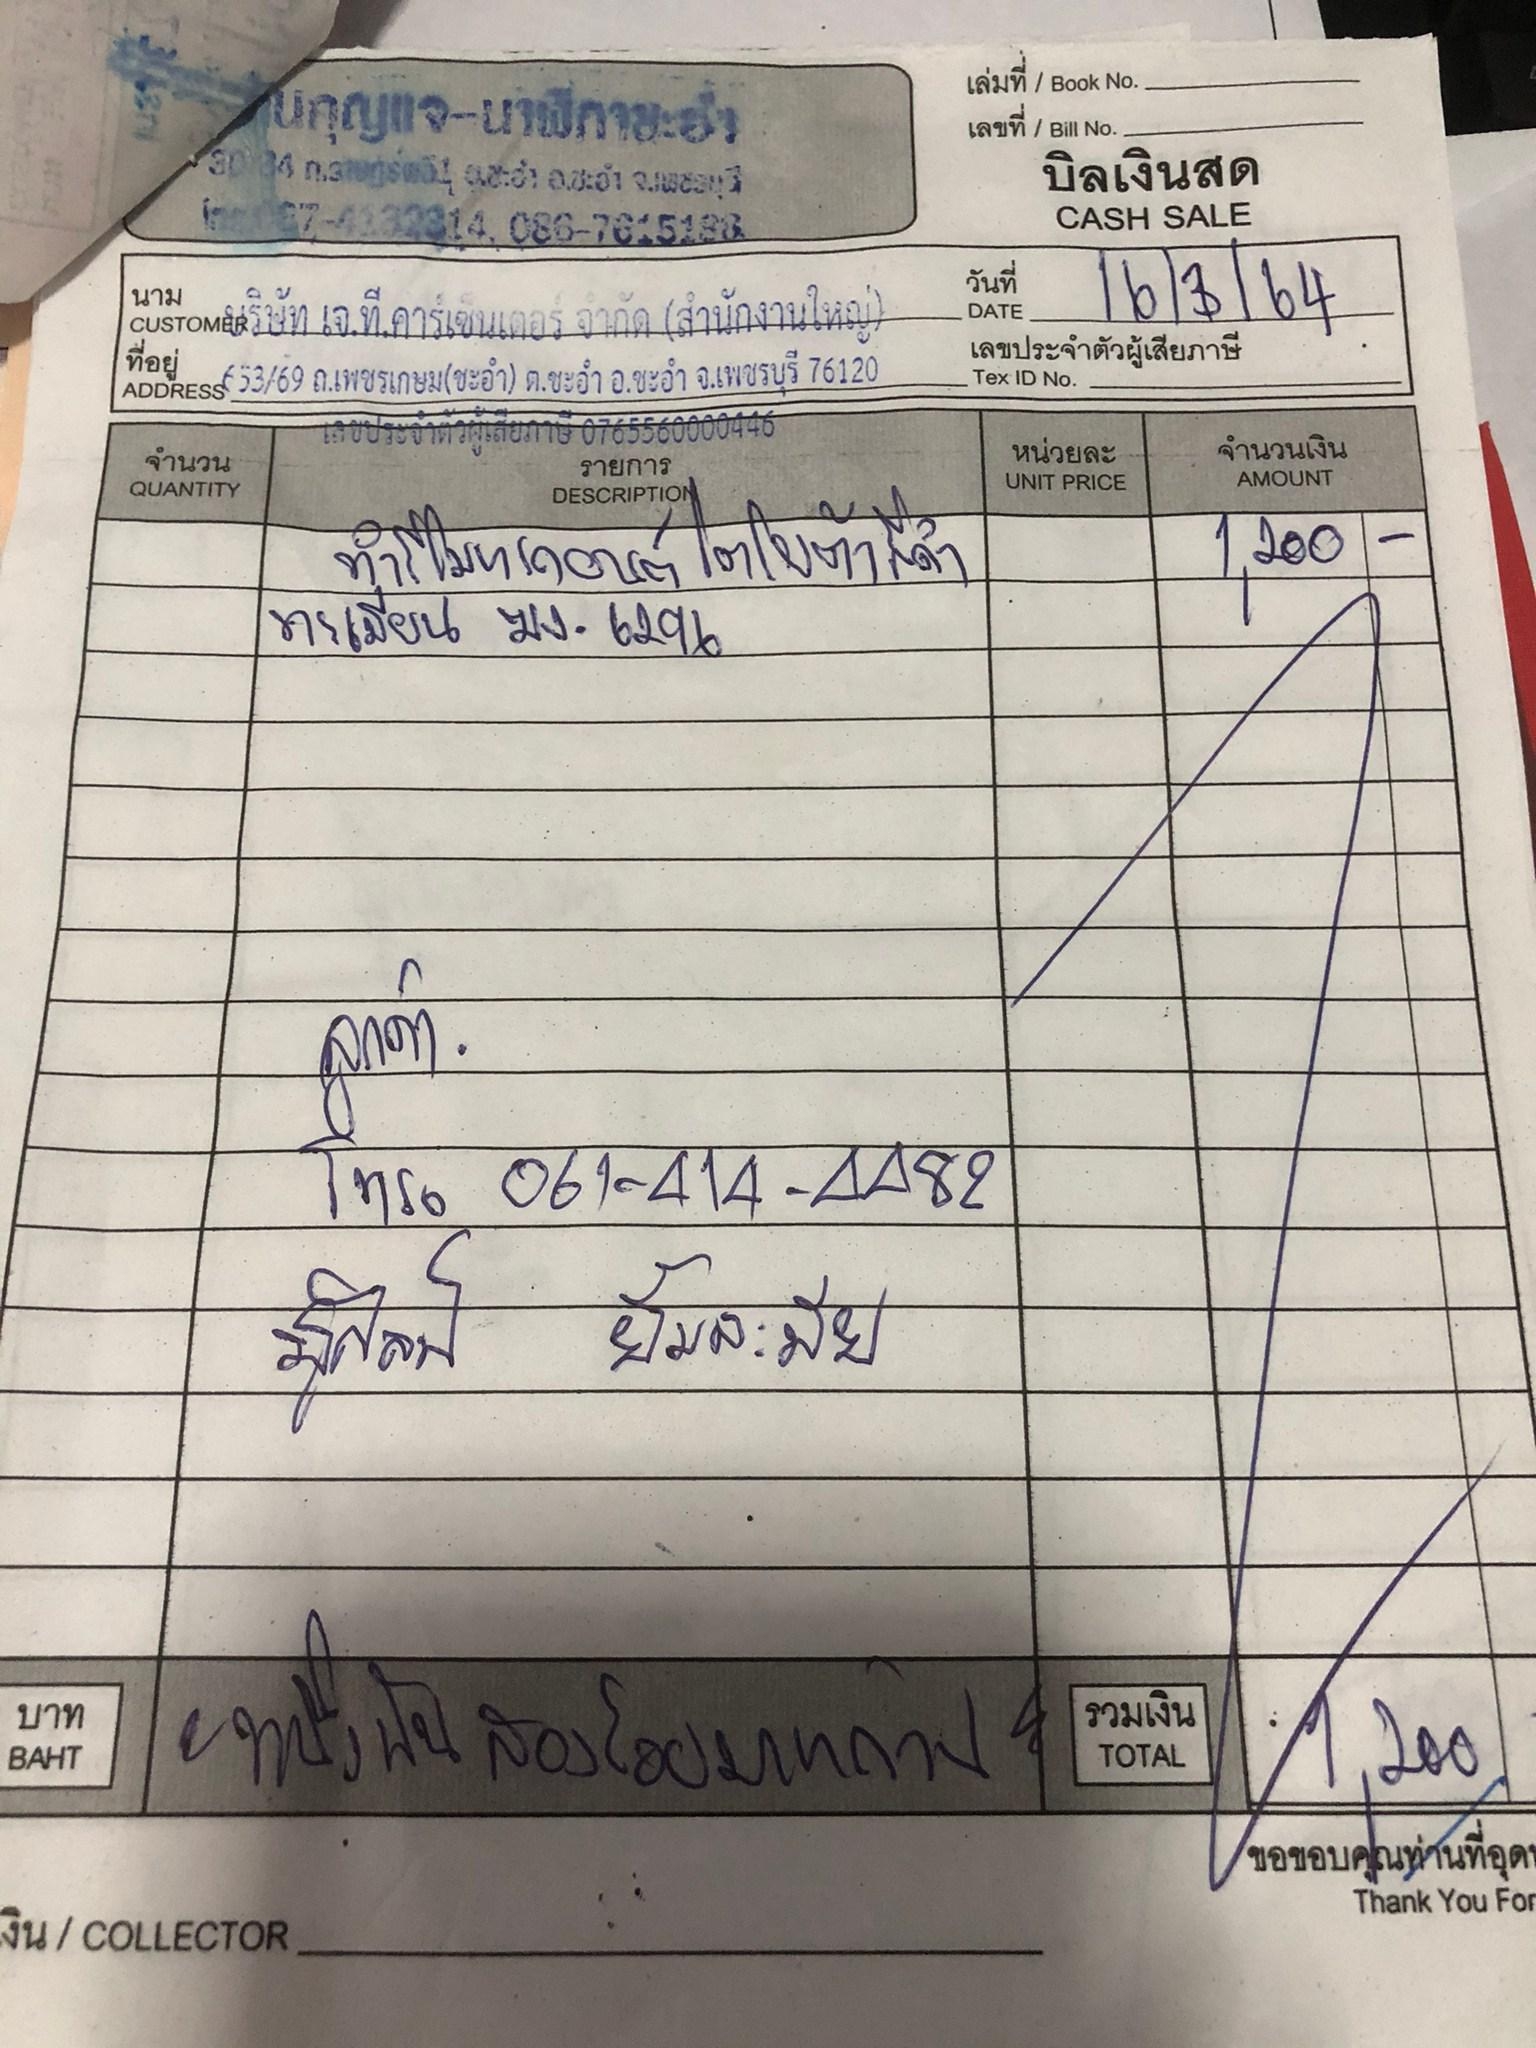 นกุญแจ-นาฬิกาชะอำ
เล่มที่ / Book No.
เลขที่ / Bill No.
อ.ชะอำ จ.เพชรบุรี
086-7615188
บิลเงินสด
CASH SALE
นาม
CUSTOMER บริษัท เจ.ที.คาร์เซ็นเตอร์ จำกัด (สำนักงานใหญ่)
วันที่
DATE 16/3/64
ที่อยู่
ADDRESS 653/69 ถ.เพชรเกษม(ชะอำ) ต.ชะอำ อ.ชะอำ จ.เพชรบุรี 76120
เลขประจำตัวผู้เสียภาษี
Tex ID No.
เลขประจำตัวผู้เสียภาษี 0765560000446
จำนวน
QUANTITY
รายการ
DESCRIPTION
หน่วยละ
UNIT PRICE
จำนวนเงิน
AMOUNT
ทำรีโมท โตโยต้า สีดำ 1,200 -
ทะเบียน 6296
ลูกค้า.
โทร. 061-414-4482
บาท
BAHT
หนึ่งพันสองร้อยบาทถ้วน
รวมเงิน
TOTAL
1,200
ขอขอบคุณท่านที่อุด
Thank You For
เงิน / COLLECTOR